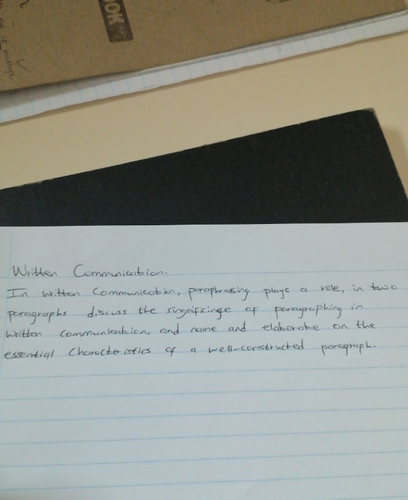 OOK
Written Communication.
In written Communication, paraphrasing plays a role, in two
paragraphs discuss the singnificinge of paragraphing in
written communication, and name and elaborate on the
essential characteristics of a well-constructed paragraph.